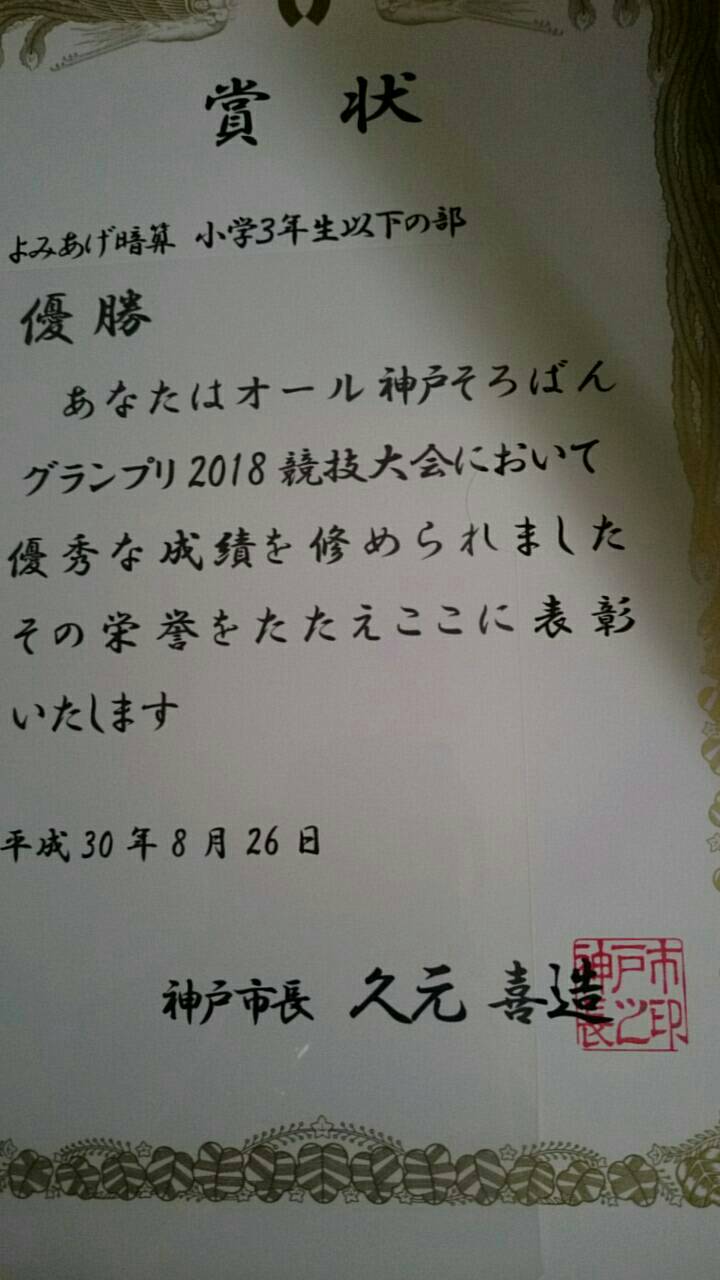 賞状
よみあげ暗算 小学3年生以下の部
優勝
あなたはオール神戸そろばん
グランプリ2018競技大会において
優秀な成績を修められました
その栄誉をたたえここに表彰
いたします
平成30年8月26日
神戸市長 久元喜造
神戸市長之印